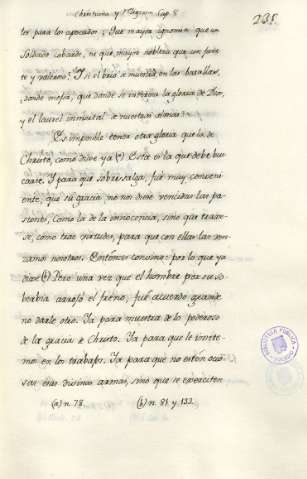 Christiano y Pelagiano Cap. 8
231.
ter para los apocados? Que mayor ignominia que un
Soldado cobarde, ni que mayor nobleza que un fuerte
y valeroso? Y si el brio se muestra en las batallas,
donde mejor, que donde se interesa la gloria de Dios,
y el laurel inmortal de nuestras almas?
Es imposible tener otra gloria que la de
Christo, como dixe ya (a) Esta es la que debe bus-
carse. Y para que sobresalga, fue muy conveni-
ente, que su gracia no nos diese vencidas las pa-
siones, como la de la inocencia, sino que traxe-
se, como trae virtudes, para que con ellas las ven-
zamos nosotros. Entonces convino: por lo que ya
dixe (b) Pero una vez que el hombre por su so-
berbia arrojó el freno, fué acuerdo grande
no darle otro. Ya para muestra de lo poderoso
de la gracia de Christo. Ya para que le imite-
mos en los trabajos. Ya para que no esten ocio-
sas estas divinas armas, sino que se exerciten
(a) n. 78.
(b) n. 81. y 133.
BIBLIOTECA PUBLICA